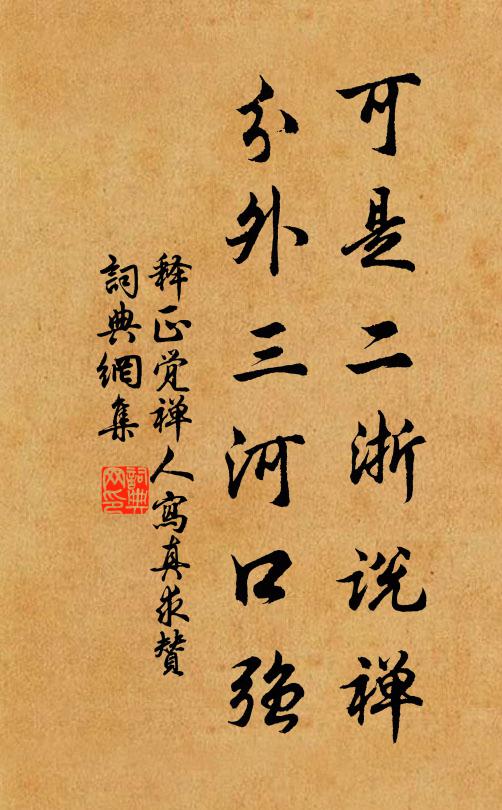 可是二浙说禅
分外三河口强
释正觉禅人寫真求赞
詞典網集
詞典網印